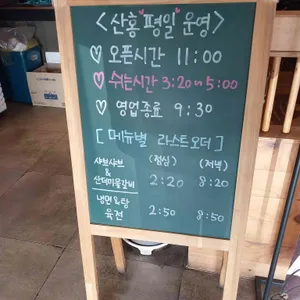 <산홍 평일 운영>
♡ 오픈시간 11:00
♡ 쉬는시간 3:20~5:00
♡ 영업종료 9:30
[메뉴별 라스트오더]
샤브샤브 (점심) (저녁)
&
산더미물갈비 2:20 8:20
냉면&탕
육전 2:50 8:50